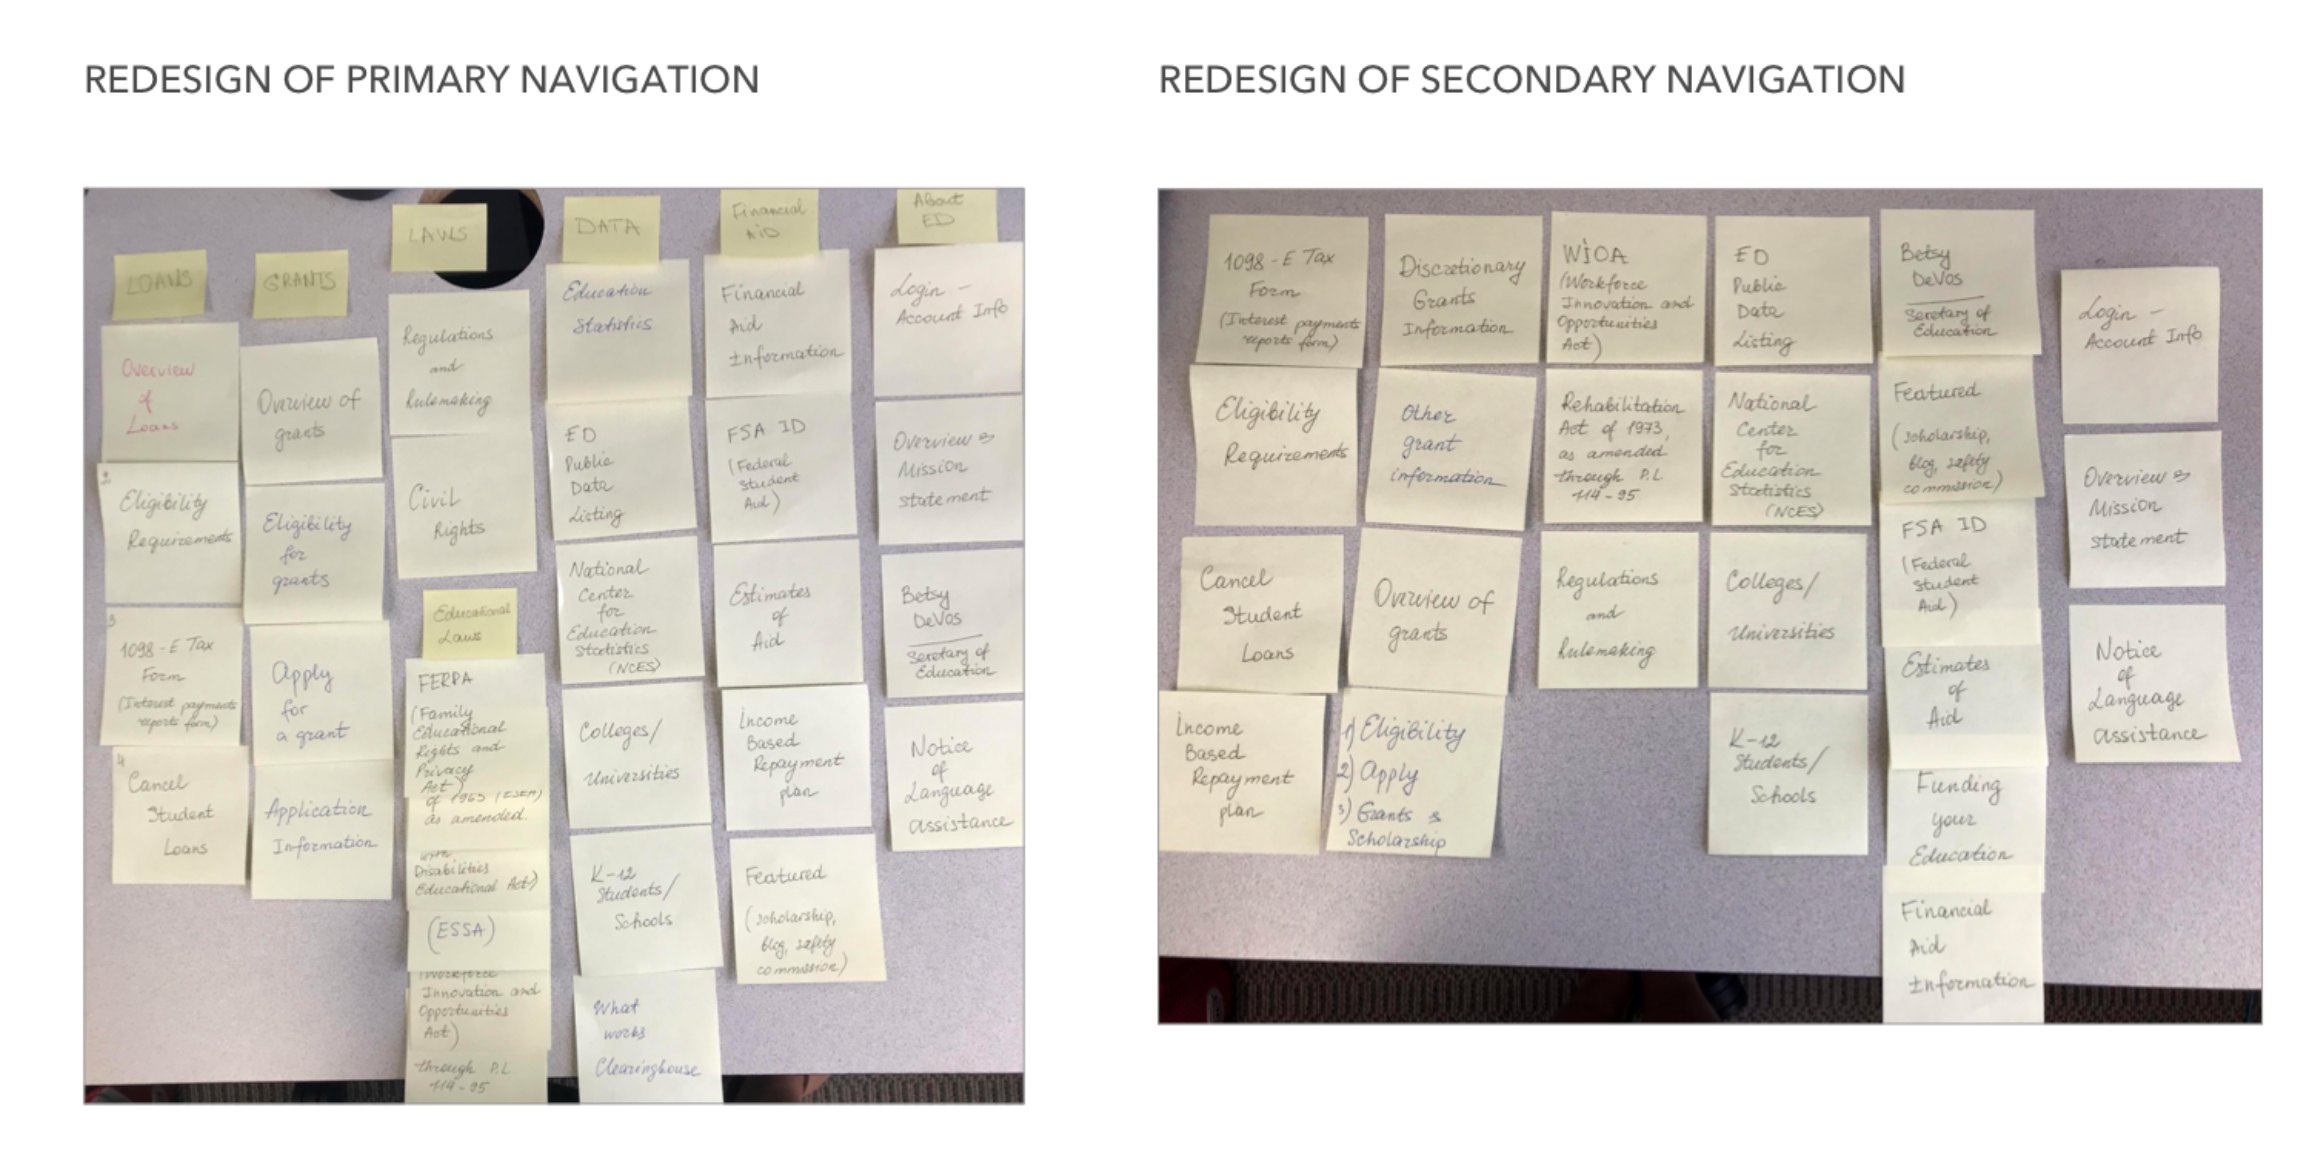 REDESIGN OF PRIMARY NAVIGATION
LOANS
Overview
of
Loans
2
Eligibility
Requirements
3
1098-E Tax
Form
(Interest payments
reports form)
4
Cancel
Student
Loans
GRANTS
Overview of
grants
Eligibility
for
grants
Apply
for
a grant
Application
Information
LAWS
Regulations
and
Rulemaking
Civil
Rights
Educational
Laws
FERPA
(Family
Educational
Rights and
Privacy
Act)
of 1965 (ESEA)
as amended
with
Disabilities
Educational Act)
(ESSA)
(Workforce
Innovation and
Opportunities
Act)
through P.L
114-95
DATA
Education
Statistics
ED
Public
Data
Listing
National
Center
for
Education
Statistics
(NCES)
Colleges/
Universities
K-12
Students/
Schools
What
works
Clearinghouse
Financial
AiD
Financial
Aid
Information
FSA ID
(Federal
Student
Aid)
Estimates
of
Aid
Income
Based
Repayment
plan
Featured
(scholarship,
blog, safety
commission)
About
ED
Login -
Account Info
Overview &
Mission
statement
Betsy
DeVos
Secretary of
Education
Notice
of
Language
assistance
REDESIGN OF SECONDARY NAVIGATION
1098-E Tax
Form
(Interest payments
reports form)
Eligibility
Requirements
Cancel
Student
Loans
Income
Based
Repayment
plan
Discretionary
Grants
Information
Other
grant
information
Overview of
grants
1) Eligibility
2) Apply
3) Grants &
Scholarship
WIOA
(Workforce
Innovation and
Opportunities
Act)
Rehabilitation
Act of 1973,
as amended
through P.L
114-95
Regulations
and
Rulemaking
ED
Public
Data
Listing
National
Center
for
Education
Statistics
(NCES)
Colleges/
Universities
K-12
Students/
Schools
Betsy
DeVos
Secretary of
Education
Featured
(scholarship,
blog, safety
commission)
FSA ID
(Federal
Student
Aid)
Estimates
of
Aid
Funding
your
Education
Financial
Aid
Information
Login -
Account Info
Overview &
Mission
statement
Notice
of
Language
assistance